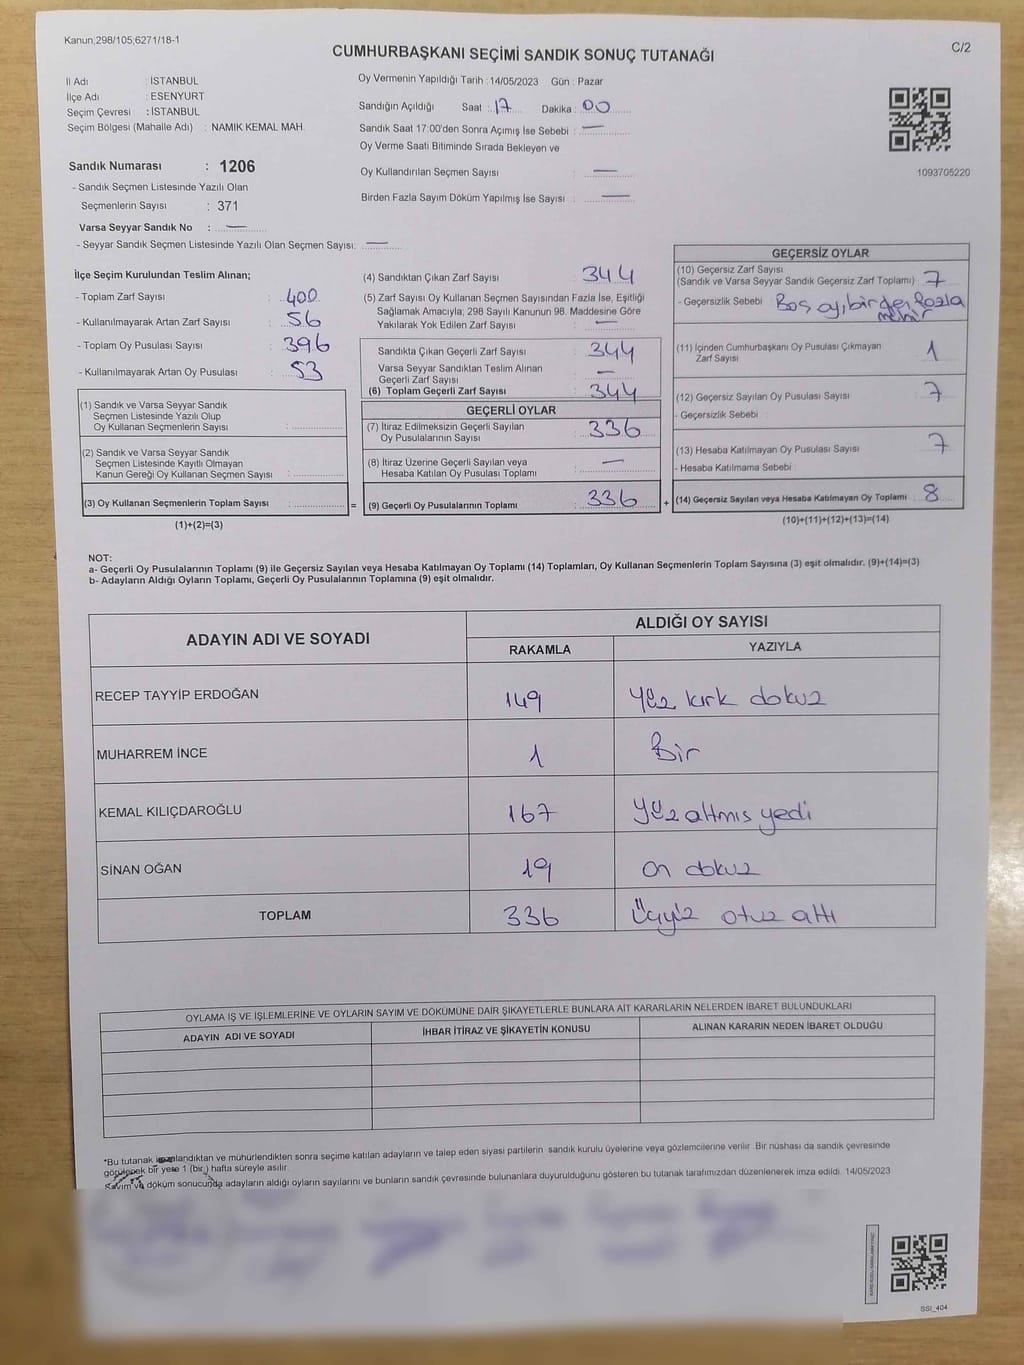 Kanun;298/105,6271/18-1
C/2
CUMHURBAŞKANI SEÇİMİ SANDIK SONUÇ TUTANAĞI
İl Adı : İSTANBUL
İlçe Adı : ESENYURT
Seçim Çevresi : İSTANBUL
Seçim Bölgesi (Mahalle Adı) : NAMIK KEMAL MAH.
Sandık Numarası : 1206
- Sandık Seçmen Listesinde Yazılı Olan
Seçmenlerin Sayısı : 371
Varsa Seyyar Sandık No : —
- Seyyar Sandık Seçmen Listesinde Yazılı Olan Seçmen Sayısı: —
Oy Vermenin Yapıldığı Tarih : 14/05/2023 Gün : Pazar
Sandığın Açıldığı Saat : 17 Dakika : 00
Sandık Saat 17:00'den Sonra Açımış İse Sebebi : —
Oy Verme Saati Bitiminde Sırada Bekleyen ve
Oy Kullandırılan Seçmen Sayısı : —
Birden Fazla Sayım Döküm Yapılmış İse Sayısı : —
1093705220
İlçe Seçim Kurulundan Teslim Alınan;
- Toplam Zarf Sayısı : 400
- Kullanılmayarak Artan Zarf Sayısı : 56
- Toplam Oy Pusulası Sayısı : 396
- Kullanılmayarak Artan Oy Pusulası : 53
(1) Sandık ve Varsa Seyyar Sandık
Seçmen Listesinde Yazılı Olup
Oy Kullanan Seçmenlerin Sayısı :
(2) Sandık ve Varsa Seyyar Sandık
Seçmen Listesinde Kayıtlı Olmayan
Kanun Gereği Oy Kullanan Seçmen Sayısı :
(3) Oy Kullanan Seçmenlerin Toplam Sayısı : =
(1)+(2)=(3)
(4) Sandıktan Çıkan Zarf Sayısı : 344
(5) Zarf Sayısı Oy Kullanan Seçmen Sayısından Fazla İse, Eşitliği
Sağlamak Amacıyla; 298 Sayılı Kanunun 98. Maddesine Göre
Yakılarak Yok Edilen Zarf Sayısı : —
Sandıkta Çıkan Geçerli Zarf Sayısı : 344
Varsa Seyyar Sandıktan Teslim Alınan
Geçerli Zarf Sayısı : —
(6) Toplam Geçerli Zarf Sayısı : 344
GEÇERLİ OYLAR
(7) İtiraz Edilmeksizin Geçerli Sayılan
Oy Pusulalarının Sayısı : 336
(8) İtiraz Üzerine Geçerli Sayılan veya
Hesaba Katılan Oy Pusulası Toplamı : —
(9) Geçerli Oy Pusulalarının Toplamı : 336 +
GEÇERSİZ OYLAR
(10) Geçersiz Zarf Sayısı
(Sandık ve Varsa Seyyar Sandık Geçersiz Zarf Toplamı) : 7
- Geçersizlik Sebebi : Boş oy, birden fazla
mühür
(11) İçinden Cumhurbaşkanı Oy Pusulası Çıkmayan
Zarf Sayısı : 1
(12) Geçersiz Sayılan Oy Pusulası Sayısı : 7
- Geçersizlik Sebebi :
(13) Hesaba Katılmayan Oy Pusulası Sayısı : 7
- Hesaba Katılmama Sebebi :
(14) Geçersiz Sayılan veya Hesaba Katılmayan Oy Toplamı : 8
(10)+(11)+(12)+(13)=(14)
NOT:
a- Geçerli Oy Pusulalarının Toplamı (9) ile Geçersiz Sayılan veya Hesaba Katılmayan Oy Toplamı (14) Toplamları, Oy Kullanan Seçmenlerin Toplam Sayısına (3) eşit olmalıdır. (9)+(14)=(3)
b- Adayların Aldığı Oyların Toplamı, Geçerli Oy Pusulalarının Toplamına (9) eşit olmalıdır.
ADAYIN ADI VE SOYADI
ALDIĞI OY SAYISI
RAKAMLA YAZIYLA
RECEP TAYYİP ERDOĞAN 149 Yüz kırk dokuz
MUHARREM İNCE 1 Bir
KEMAL KILIÇDAROĞLU 167 Yüz altmış yedi
SİNAN OĞAN 19 On dokuz
TOPLAM 336 Üçyüz otuz altı
OYLAMA İŞ VE İŞLEMLERİNE VE OYLARIN SAYIM VE DÖKÜMÜNE DAİR ŞİKAYETLERLE BUNLARA AİT KARARLARIN NELERDEN İBARET BULUNDUKLARI
ADAYIN ADI VE SOYADI İHBAR İTİRAZ VE ŞİKAYETİN KONUSU ALINAN KARARIN NEDEN İBARET OLDUĞU
*Bu tutanak imzalandıktan ve mühürlendikten sonra seçime katılan adayların ve talep eden siyasi partilerin sandık kurulu üyelerine veya gözlemcilerine verilir. Bir nüshası da sandık çevresinde
görülecek bir yere 1 (bir ) hafta süreyle asılır.
Sayım ve döküm sonucunda adayların aldığı oyların sayılarını ve bunların sandık çevresinde bulunanlara duyurulduğunu gösteren bu tutanak tarafımızdan düzenlenerek imza edildi. 14/05/2023
SSI_404